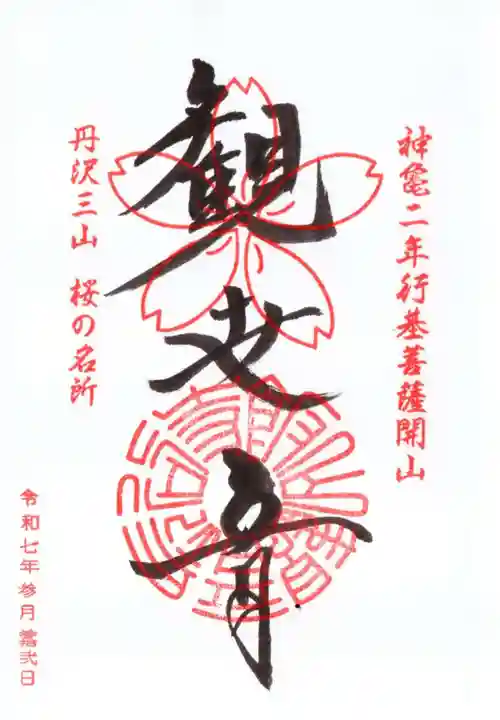 神亀二年行基菩薩開山
観世音
丹沢三山 桜の名所
令和七年参月廿弐日